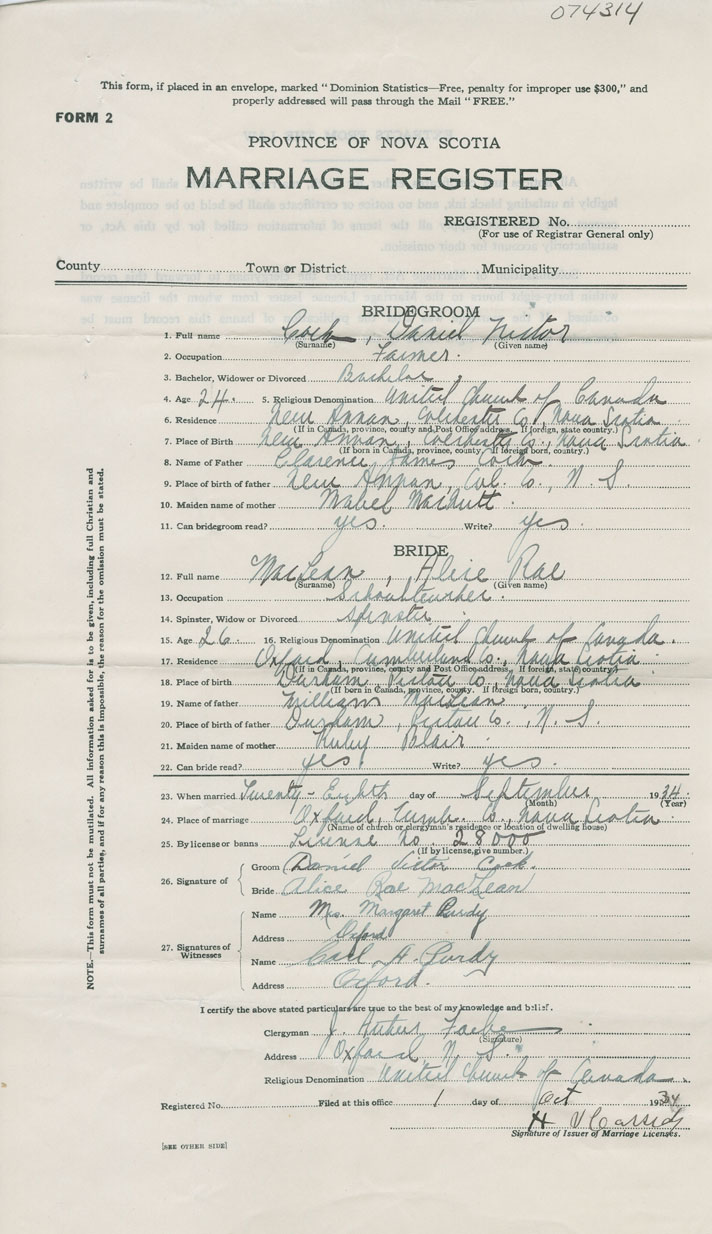 074314
This form, if placed in an envelope, marked "Dominion Statistics—Free, penalty for improper use $300," and
properly addressed will pass through the Mail "FREE."
FORM 2
PROVINCE OF NOVA SCOTIA
MARRIAGE REGISTER
REGISTERED No.
(For use of Registrar General only)
County Town or District Municipality
BRIDEGROOM
1. Full name Cock, Daniel Victor
(Surname) (Given name)
2. Occupation Farmer.
3. Bachelor, Widower or Divorced Bachelor
4. Age 24. 5. Religious Denomination United Church of Canada
6. Residence New Annan, Colchester Co., Nova Scotia
(If in Canada, province, county and Post Office address. If foreign, state country.)
7. Place of Birth New Annan, Colchester Co., Nova Scotia.
(If born in Canada, province, county. If foreign born, country.)
8. Name of Father Clarence James Cock.
9. Place of birth of father New Annan, Col. Co., N. S.
10. Maiden name of mother Mabel MacNutt.
11. Can bridegroom read? yes. Write? yes.
BRIDE
12. Full name MacLean, Alice Rae
(Surname) (Given name)
13. Occupation Schoolteacher.
14. Spinster, Widow or Divorced Spinster.
15. Age 26. 16. Religious Denomination United Church of Canada.
17. Residence Oxford, Cumberland Co., Nova Scotia
(If in Canada, province, county and Post Office address. If foreign, state country.)
18. Place of birth Durham, Pictou Co., Nova Scotia.
(If born in Canada, province, county. If foreign born, country.)
19. Name of father William MacLean
20. Place of birth of father Durham, Pictou Co., N. S.
21. Maiden name of mother Ruby Blair.
22. Can bride read? yes. Write? yes.
23. When married Twenty-Eighth day of September 1934
(Month) (Year)
24. Place of marriage Oxford, Cumb. Co., Nova Scotia.
(Name of church or clergyman's residence or location of dwelling house)
25. By license or banns License No. 28000
(If by license, give number.)
26. Signature of
Groom Daniel Victor Cock.
Bride Alice Rae MacLean
27. Signatures of Witnesses
Name Mrs. Margaret Purdy
Address Oxford
Name A. Purdy
Address Oxford.
I certify the above stated particulars are true to the best of my knowledge and belief.
Clergyman J. Arthur
(Signature)
Address Oxford N. S.
Religious Denomination United Church of Canada.
Registered No. Filed at this office 1 day of Oct 1934
H V Cassidy
Signature of Issuer of Marriage Licenses.
[SEE OTHER SIDE]
NOTE.—This form must not be mutilated. All information asked for is to be given, including full Christian and
surnames of all parties, and if for any reason this is impossible, the reason for the omission must be stated.